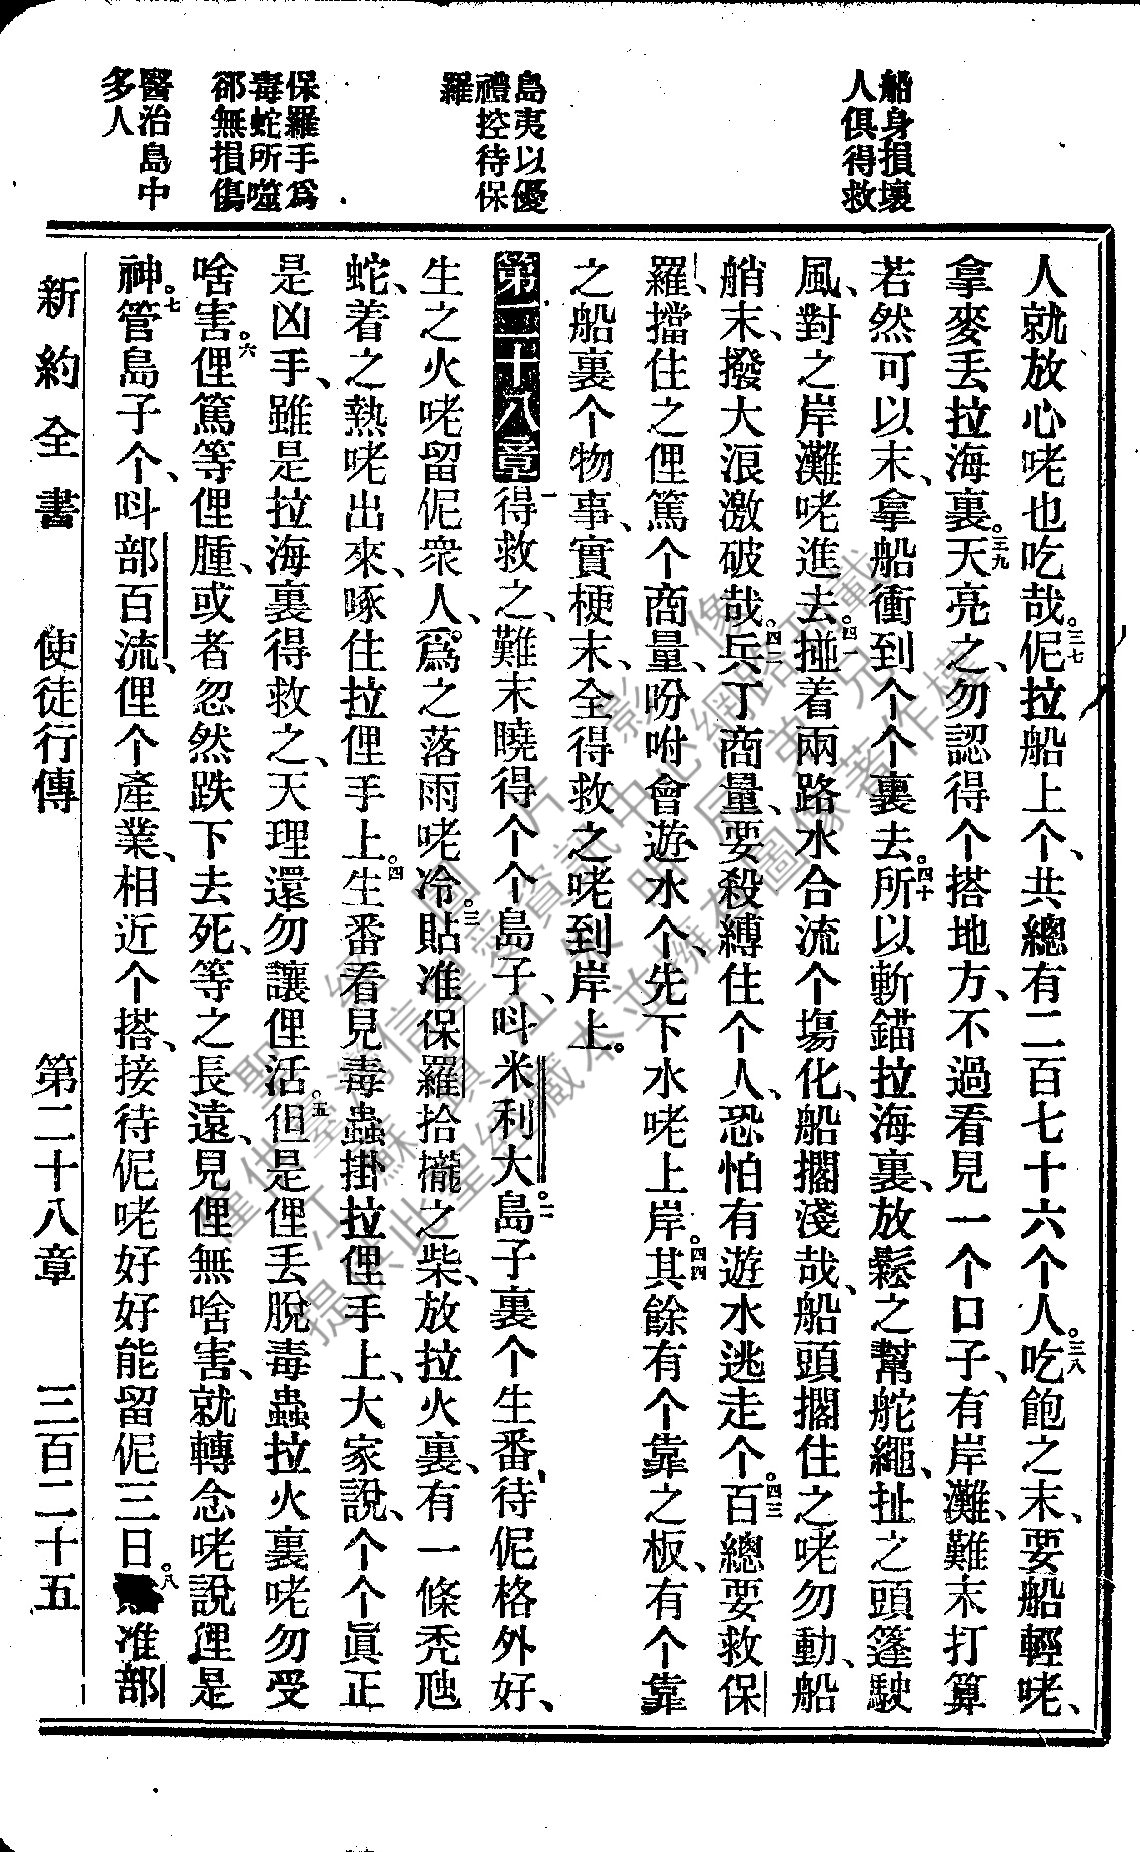 船身損壞
人俱得救
島夷以優
禮控待保
羅
保羅手爲
毒蛇所噬
卻無損傷
醫治島中
多人
人就放心咾也吃哉。三七伲拉船上个、共總有二百七十六个人。三八吃飽之末、要船輕咾、
拿麥丟拉海裏。三九天亮之、勿認得个搭地方、不過看見一个口子、有岸灘、難末打算
若然可以末、拿船衝到个个裏去。四十所以斬錨拉海裏、放鬆之幫舵繩、扯之頭篷駛
風、對之岸灘咾進去。四一掽着兩路水合流个塲化、船擱淺哉、船頭擱住之咾勿動、船
艄末、撥大浪激破哉。四二兵丁商量、要殺縛住个人、恐怕有遊水逃走个。四三百總要救保
羅、擋住之俚篤个商量、吩咐會遊水个、先下水咾上岸。四四其餘有个靠之板、有个靠
之船裏个物事、實梗末、全得救之咾到岸上。
第二十八章一得救之、難末曉得个个島子、呌米利大島。二島子裏个生番、待伲格外好、
生之火咾留伲衆人、爲之落雨咾冷。三貼准保羅拾攏之柴、放拉火裏、有一條禿虺
蛇、着之熱咾出來、啄住拉俚手上。四生番看見毒蟲掛拉俚手上、大家說、个个眞正
是凶手、雖是拉海裏得救之、天理還勿讓俚活。五但是俚丟脫毒蟲拉火裏咾勿受
啥害。六俚篤等俚腫、或者忽然跌下去死、等之長遠、見俚無啥害、就轉念咾說、俚是
神。七管島子个、呌部百流、俚个產業、相近个搭、接待伲咾好好能留伲三日。八准部
新約全書　使徒行傳　第二十八章　三百二十五
聖經圖片影像
僅供臺灣信望愛資訊中心網路下載
江蘇鎮江朱明辰弟兄
提供此聖經藏本並擁有圖像著作權